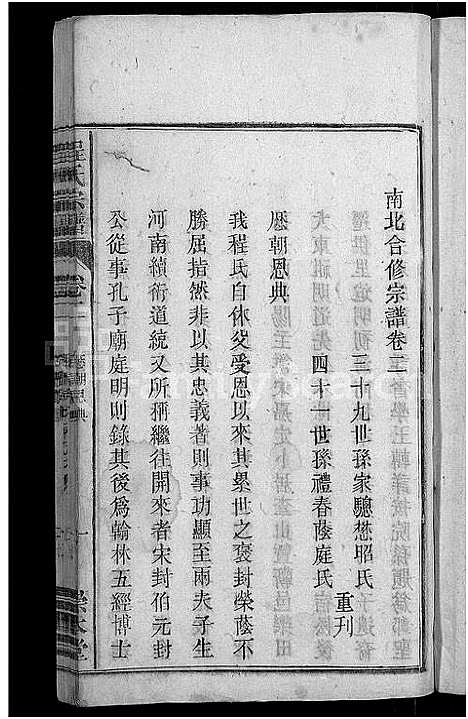 南北合修宗譜卷二
三十九世孫家驄懋昭氏
四十一世孫禮春蔭庭氏
重刊
歷朝恩典
我程氏自休父受恩以來其畢世之褒封榮蔭不
勝屈指然非以其忠義著則事功顯至兩夫子生
河南續術道統又所稱繼往開來者宋封伯元封
公從事孔子廟庭明則錄其後爲翰林五經博士
程氏宗譜
卷二
歷朝恩典
一